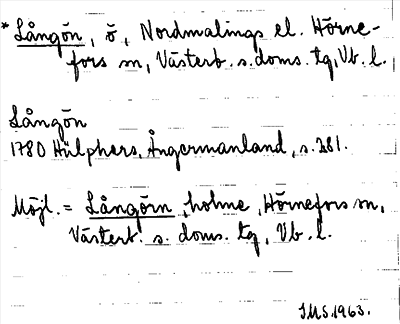 * Långön, ö, Nordmalings el. Hörne-
fors sn, Västerb. s. doms. tg, Vb. l.
Långön
1780 Hülphers, Ångermanland, s. 281.
Möjl. = Långörn, holme, Hörnefors sn,
Västerb. s. doms. tg, Vb. l.
IMS. 1963.